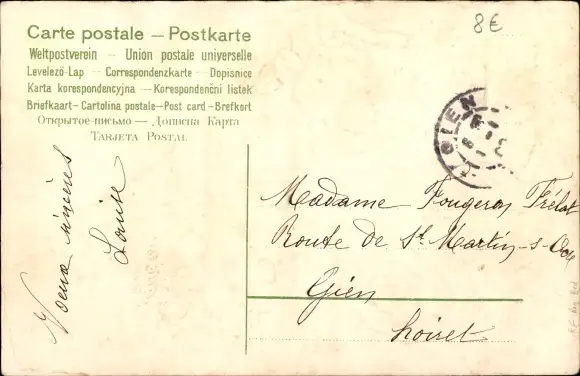 Carte postale — Postkarte
Weltpostverein — Union postale universelle
Levelező-Lap — Correspondenzkarte — Dopisnice
Karta korespondencyjna — Korespondenční listek
Briefkaart — Cartolina postale — Post card — Brefkort
Открытое письмо — Дописна Карта
Tarjeta Postal
8€
GIEN
Vœux sincères
Louise
Madame Fougeron Frélat
Route de St Martin-s-Ocre
Gien
Loiret